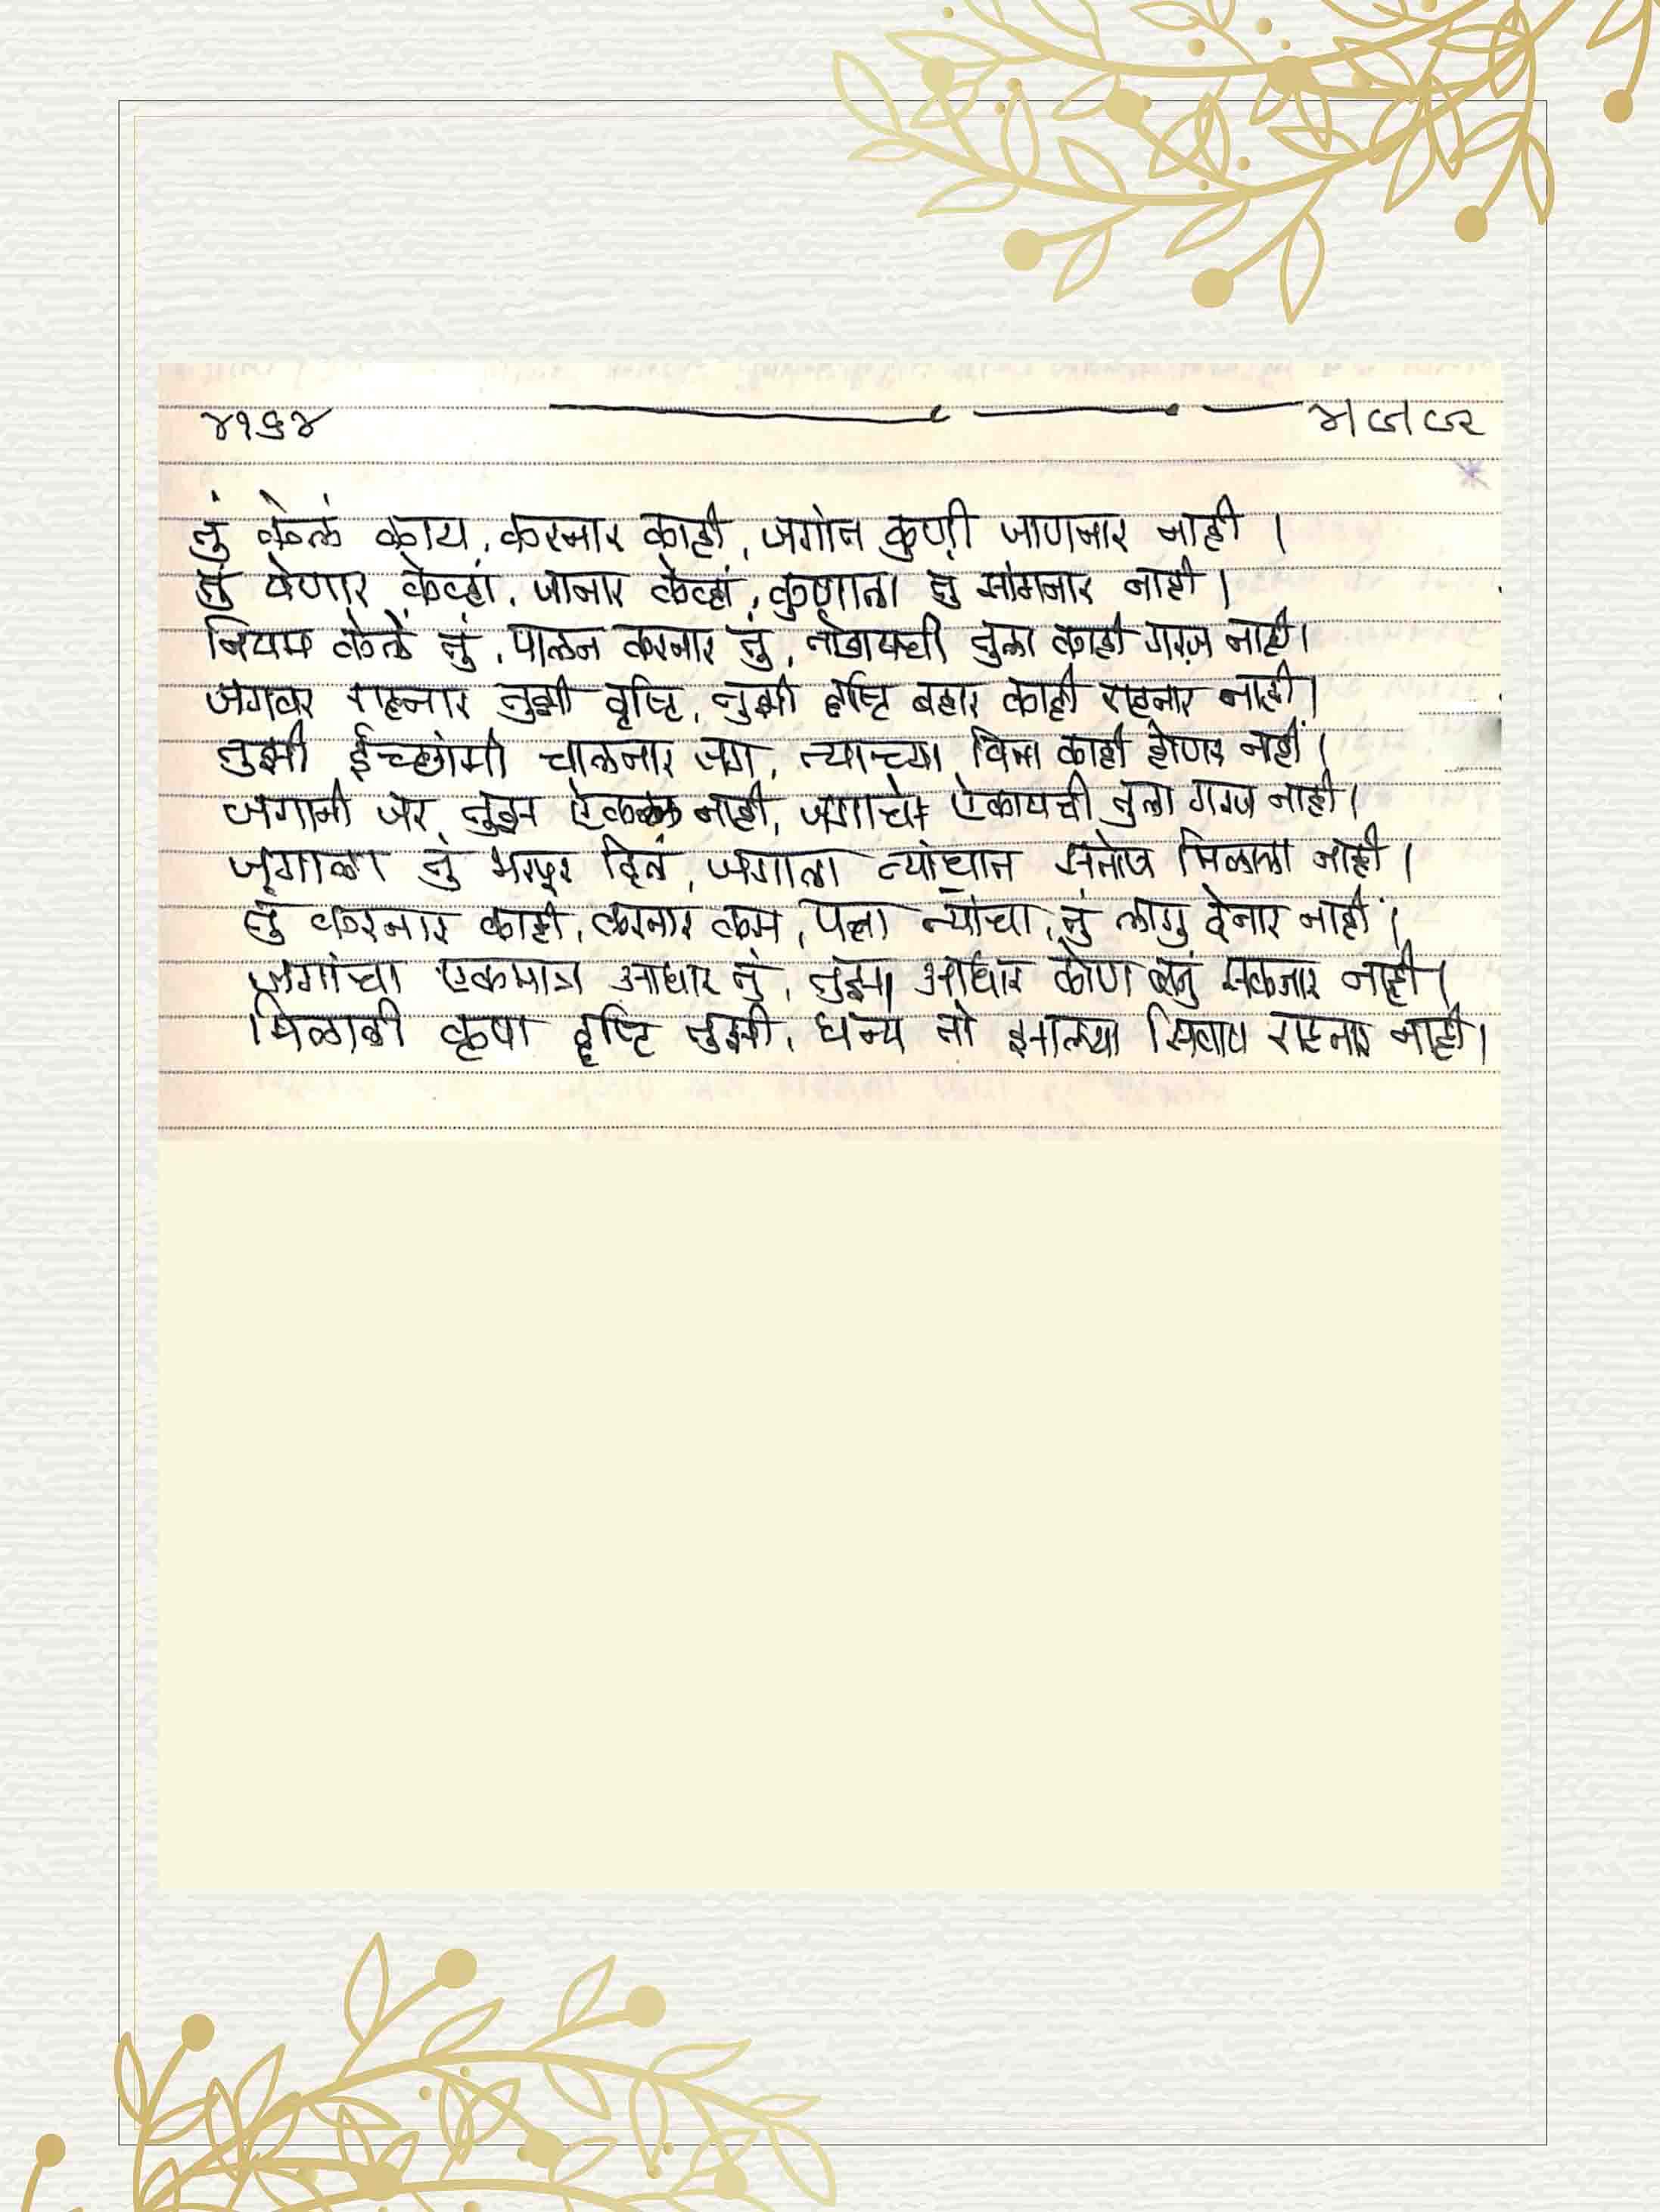 ४१६४
तुं केलं काय, करनार काही, जगांत कुणी जाणनार नाही ।
तुं येणार केव्हां, जानार केव्हां, कुणाला तु सांगनार नाही ।
नियम केले तुं, पालन करनार तुं, तोडायची तुला काही गरज नाही ।
जगावर राहनार तुझी दृष्टि, तुझी दृष्टि बहार काही राहनार नाही ।
तुझी ईच्छांनी चालनार जग, त्याच्या विना काही होणार नाही ।
जगानी जर तुझ ऐकलं नाही, जगाचे ऐकायची तुला गरज नाही ।
जगाला तुं भरपूर दिलं, जगाला त्यांचात संतोष मिळाला नाही ।
तुं करनार काही, करनार कसं, पत्ता त्यांचा, तुं लागु देनार नाही ।
जगांचा एकमात्र आधार तुं, तुझा आधार कोण बनुं सकनार नाही ।
मिळाली कृपा दृष्टि तुझी, धन्य तो झाल्या सिवाय राहनार नाही ।